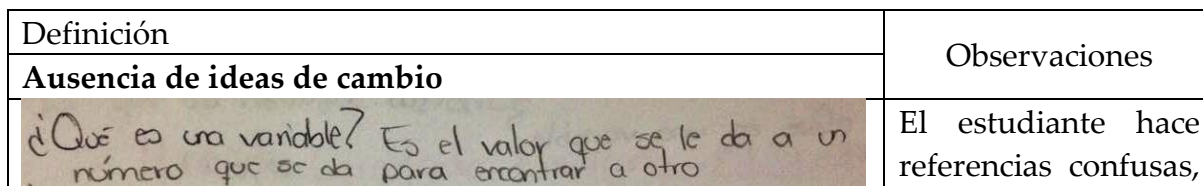 Definición
Observaciones
Ausencia de ideas de cambio
¿Qué es una variable? Es el valor que se le da a un
número que se da para encontrar a otro
El estudiante hace
referencias confusas,